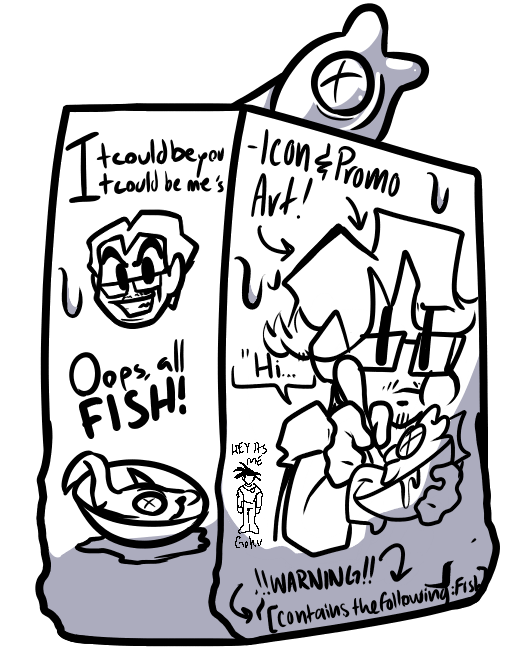 Itcouldbeyou
Itcould be me's
Oops, all
FISH!
-Icon & Promo
Art!
"Hi...
HEY ITS
ME
Goku
!!WARNING!!
[contains thefollowing:Fish]